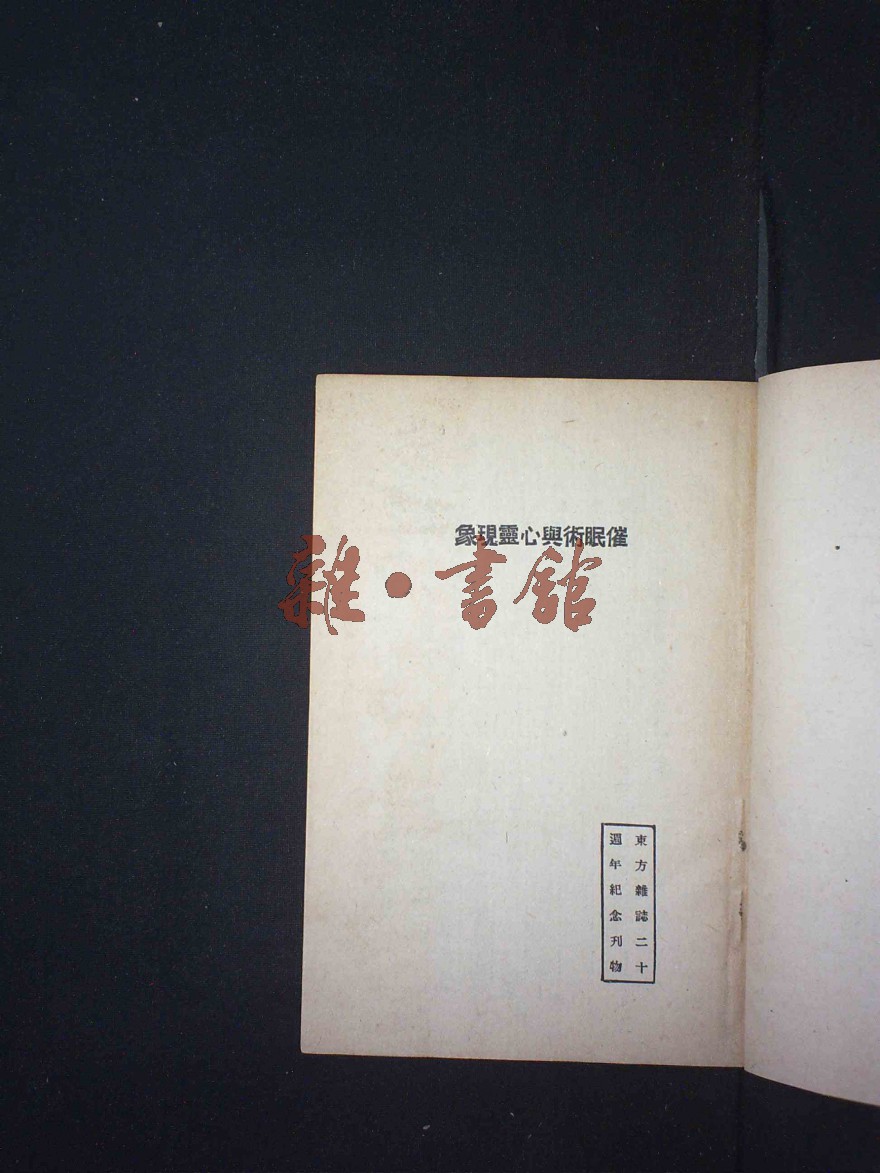 催眠術與心靈現象
雜·書館
東方雜誌二十
週年紀念刊物